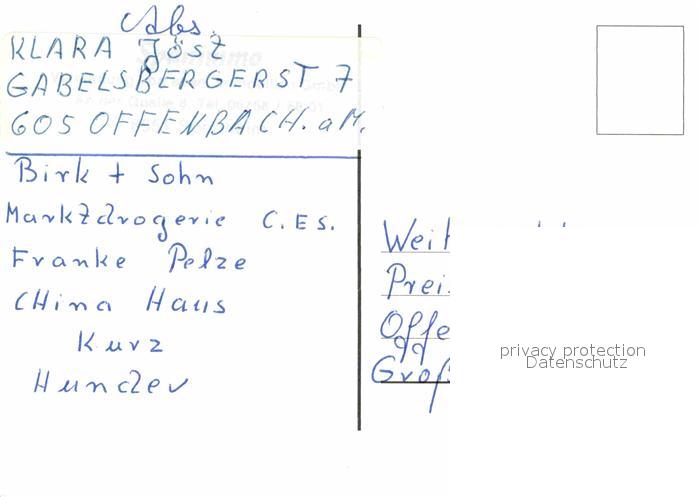 Abs.
KLARA JÖST
GABELSBERGERST 7
605 OFFENBACH. a M.
Birk + Sohn
Marktdrogerie C. E S.
Franke Pelze
CHina Haus
Kurz
Hunder
Weit
Prei
Offe
Groß
privacy protection
Datenschutz